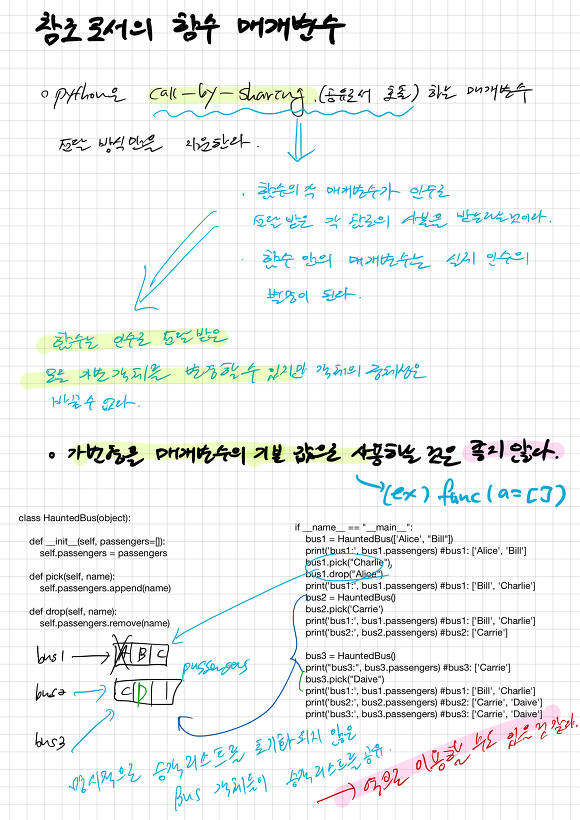 참조로서의 함수 매개변수
○ python은 call-by-sharing (공유로서 호출) 하는 매개변수
전달 방식만을 지원한다.
· 함수의 각 매개변수가 인수로
전달 받은 각 참조의 사본을 받는다는것이다.
· 함수 안의 매개변수는 실제 인수의
별명이 된다.
함수는 인수로 전달받은
모든 가변객체를 변경할 수 있지만 객체의 정체성은
바꿀 수 없다.
○ 가변형을 매개변수의 기본 값으로 사용하는 것은 좋지 않다.
(ex) func(a=[])
class HauntedBus(object):
def __init__(self, passengers=[]):
self.passengers = passengers
def pick(self, name):
self.passengers.append(name)
def drop(self, name):
self.passengers.remove(name)
if __name__ == "__main__":
bus1 = HauntedBus(['Alice', "Bill"])
print('bus1:', bus1.passengers) #bus1: ['Alice', 'Bill']
bus1.pick("Charlie")
bus1.drop("Alice")
print('bus1:', bus1.passengers) #bus1: ['Bill', 'Charlie']
bus2 = HauntedBus()
bus2.pick('Carrie')
print('bus1:', bus1.passengers) #bus1: ['Bill', 'Charlie']
print('bus2:', bus2.passengers) #bus2: ['Carrie']
bus3 = HauntedBus()
print("bus3:", bus3.passengers) #bus3: ['Carrie']
bus3.pick("Daive")
print('bus1:', bus1.passengers) #bus1: ['Bill', 'Charlie']
print('bus2:', bus2.passengers) #bus2: ['Carrie', 'Daive']
print('bus3:', bus3.passengers) #bus3: ['Carrie', 'Daive']
bus1 A B C
passengers
bus2 C D
bus3
명시적으로 승객리스트를 초기화되지 않은
Bus 객체들이 승객리스트를 공유.
→ 역으로 이용할 수도 있을 것 같다.